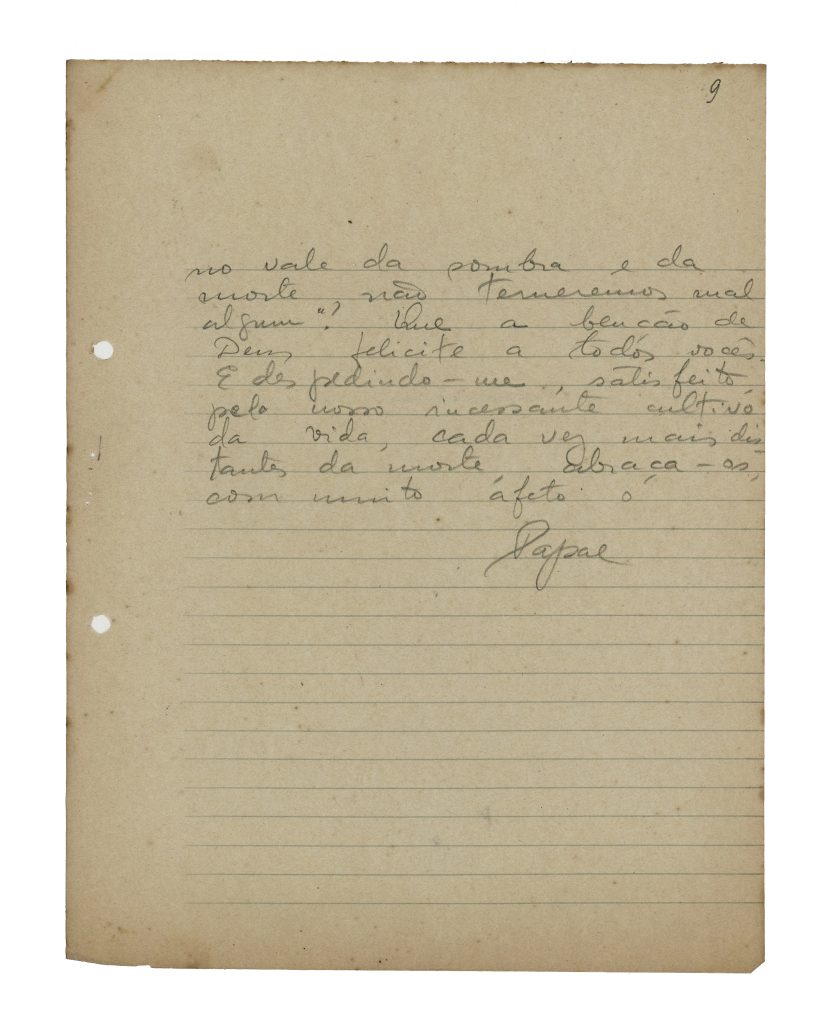 9
no vale da sombra e da
morte não temeremos mal
algum"? Que a benção de
Deus felicite a todos vocês.
E despedindo-me, satisfeito,
pelo nosso incessante cultivo
da vida, cada vez mais dis
tantes da morte, abraça-os,
com muito afeto o
Papae